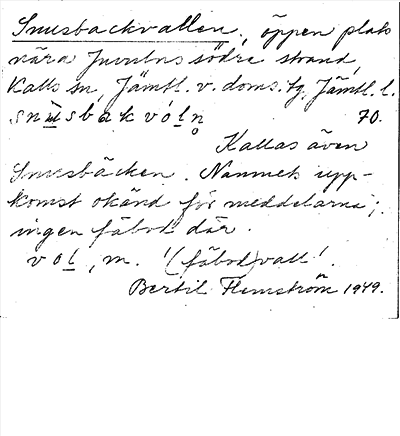 Snusbackvallen, öppen plats
nära Juvulns södre strand,
Kalls sn, Jämtl. v. doms. tg, Jämtl. l.
snusbakvóln 70.
Kallas även
Snusbäcken. Namnets upp-
komst okänd för meddelarna;
ingen fäbod där.
vol, m. '(fäbod)vall'.
Bertil Flemström 1949.